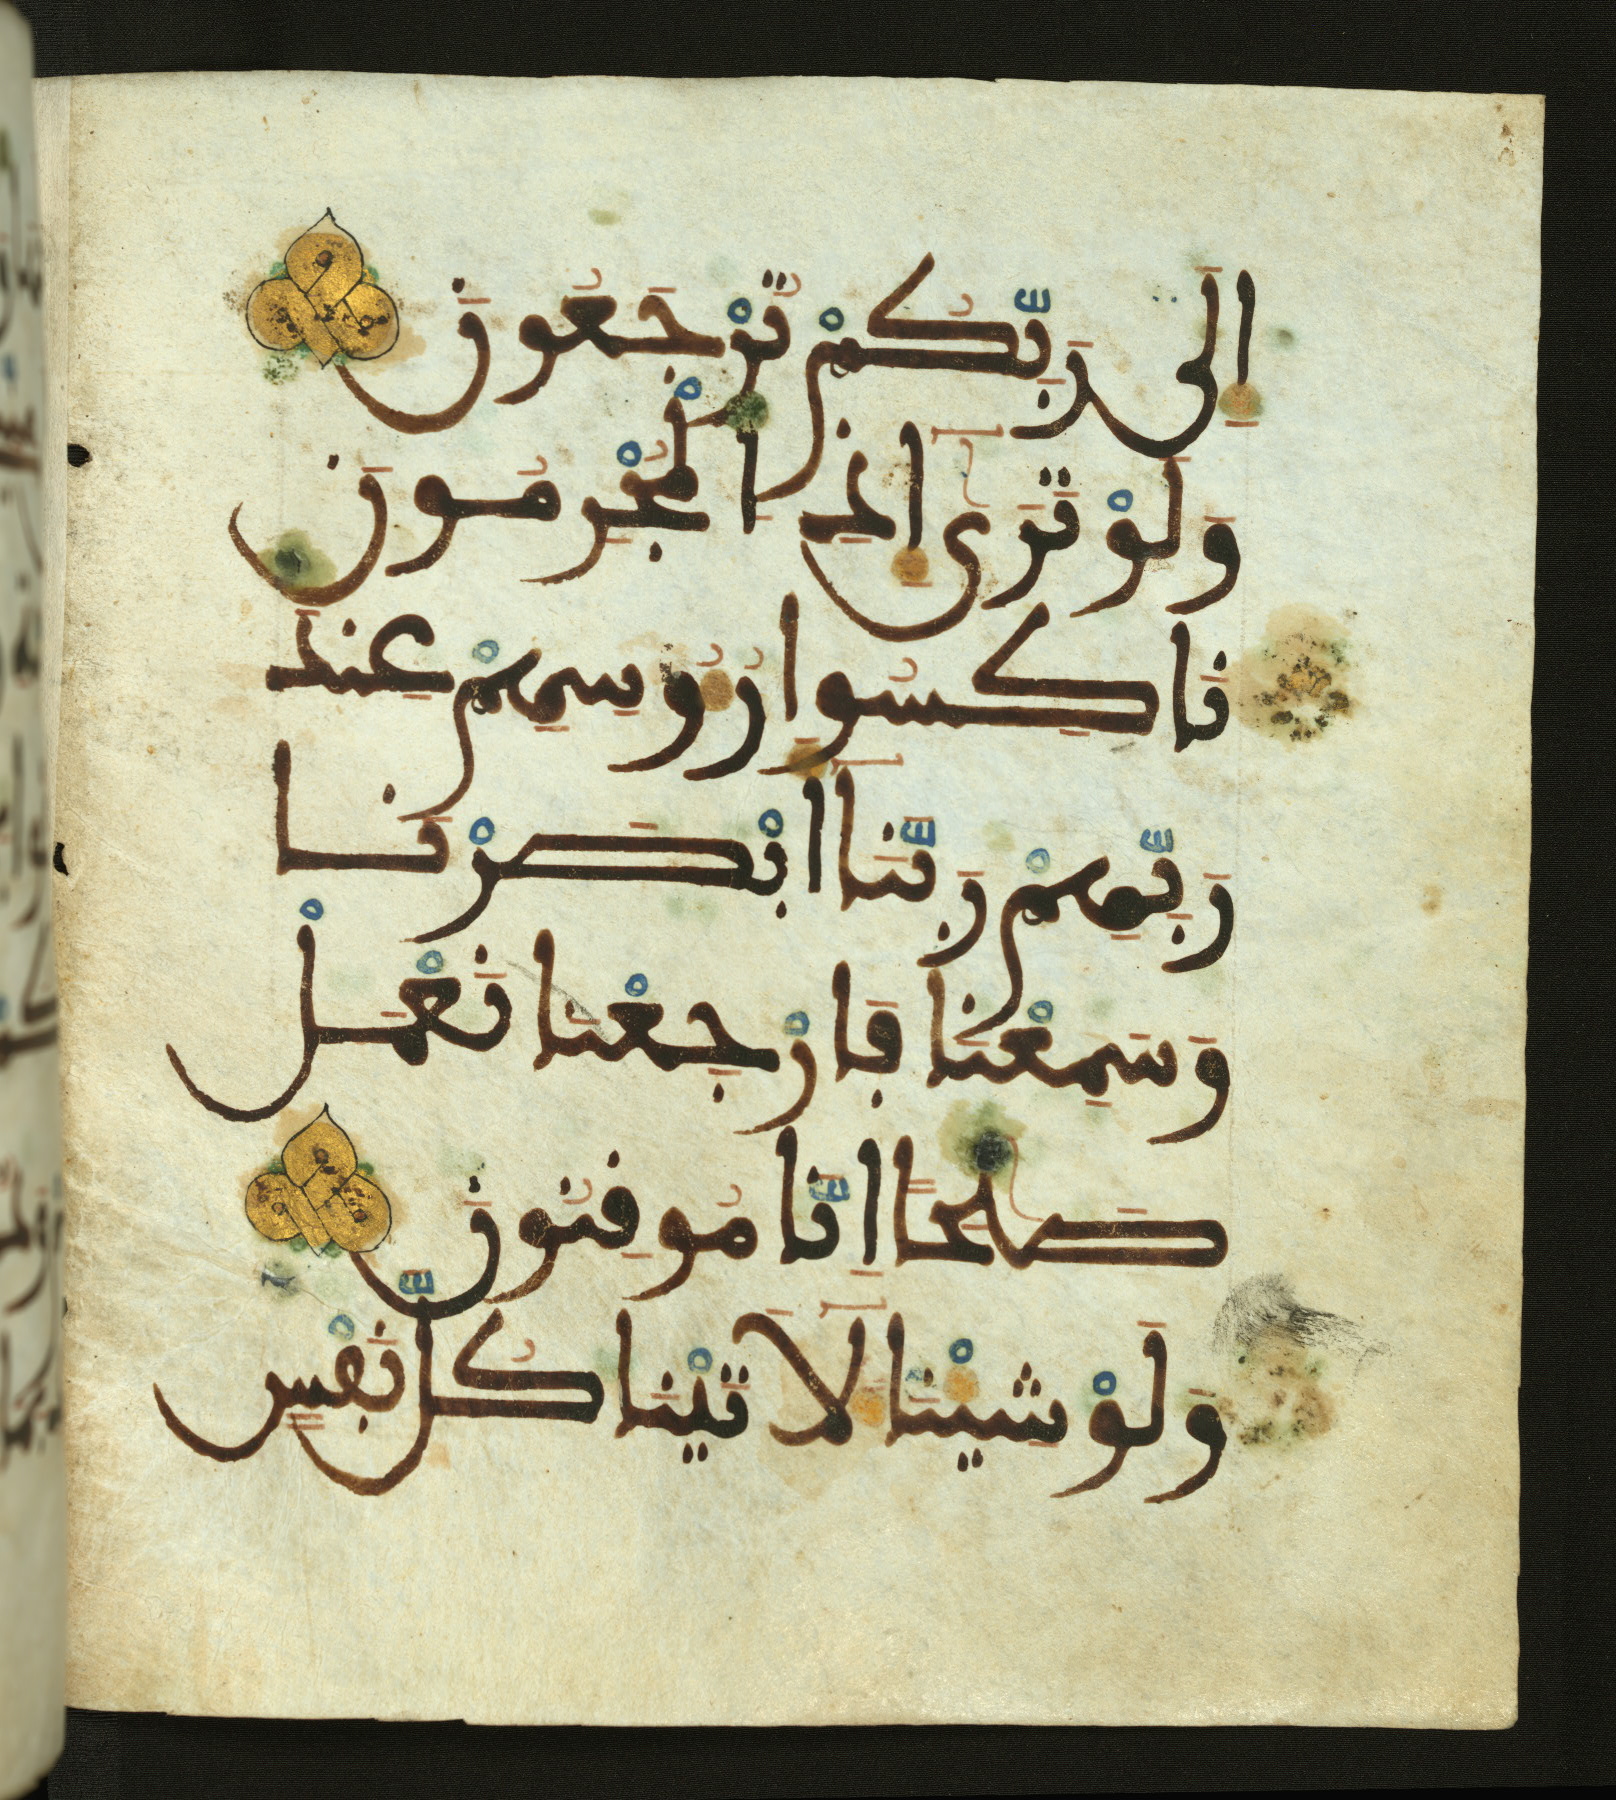 إِلَىٰ رَبِّكُمْ تُرْجَعُونَ
وَلَوْ تَرَىٰٓ إِذِ الْمُجْرِمُونَ
نَاكِسُوا رُءُوسِهِمْ عِندَ
رَبِّهِمْ رَبَّنَآ أَبْصَرْنَا
وَسَمِعْنَا فَارْجِعْنَا نَعْمَلْ
صَٰلِحًا إِنَّا مُوقِنُونَ
وَلَوْ شِئْنَا لَأٓتَيْنَا كُلَّ نَفْسٍ